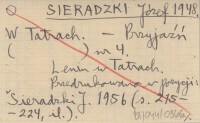 SIERADZKI Józef 1948.
W Tatrach. — Przyjaźń
( ) nr 4.
Lenin w Tatrach.
Przedrukowano w pozycji:
"Sieradzki J. 1956 (s. 215-
-224, il.).